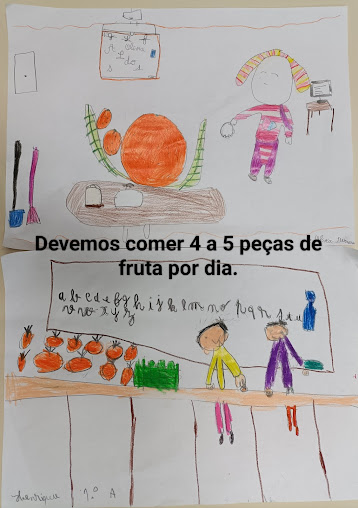 Devemos comer 4 a 5 peças de
fruta por dia.
a b c d e f g h i j k l m n o p q r s t u
v w x y z
Henrique 1.º A